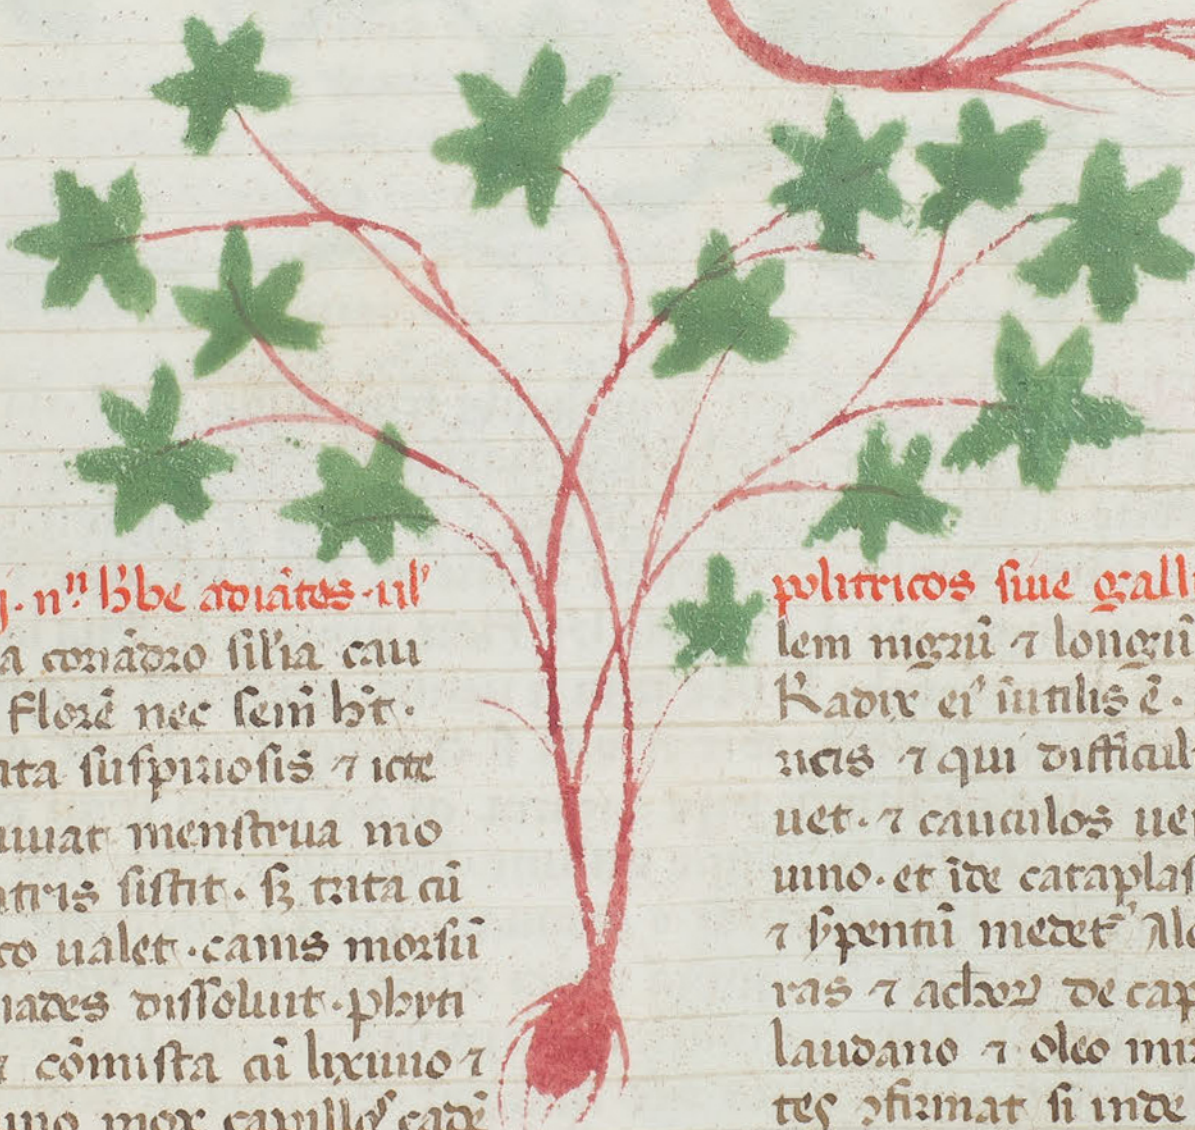 n̄n h̄be adiātes · ul'
a coriādro sil'ia cau
Florē nec semī h̄t ·
ata suspiriosis ⁊ icte
iuuat menstrua mo
ntris sistit · sꝫ trita cū
to ualet · canis morsū
iades dissoluit · phyti
cōmista cū lixiuio ⁊
uino mox capillos cadē
politricos siue galli
lem nigrū ⁊ longiū
Radix ei' iutilis ē ·
ricis ⁊ qui difficul
uet · ⁊ cauculos ue
uino · et īde cataplas
⁊ s̄pentiū medet' Alo
ras ⁊ achorꝝ de cap
laudano ⁊ oleo mir
tes ꝯfirmat si inde